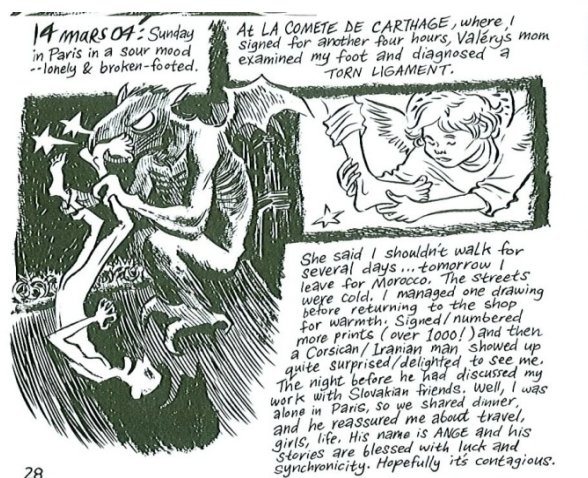 14 MARS 04: Sunday
in Paris in a sour mood
--lonely & broken-footed.
At LA COMETE DE CARTHAGE, where I
signed for another four hours, Valéry's mom
examined my foot and diagnosed a
TORN LIGAMENT.
She said I shouldn't walk for
several days... tomorrow I
leave for Morocco. The streets
were cold. I managed one drawing
before returning to the shop
for warmth. Signed/numbered
more prints (over 1000!) and then
a Corsican/Iranian man showed up
quite surprised/delighted to see me.
The night before he had discussed my
work with Slovakian friends. Well, I was
alone in Paris, so we shared dinner,
and he reassured me about travel,
girls, life. His name is ANGE and his
stories are blessed with luck and
synchronicity. Hopefully it's contagious.
28